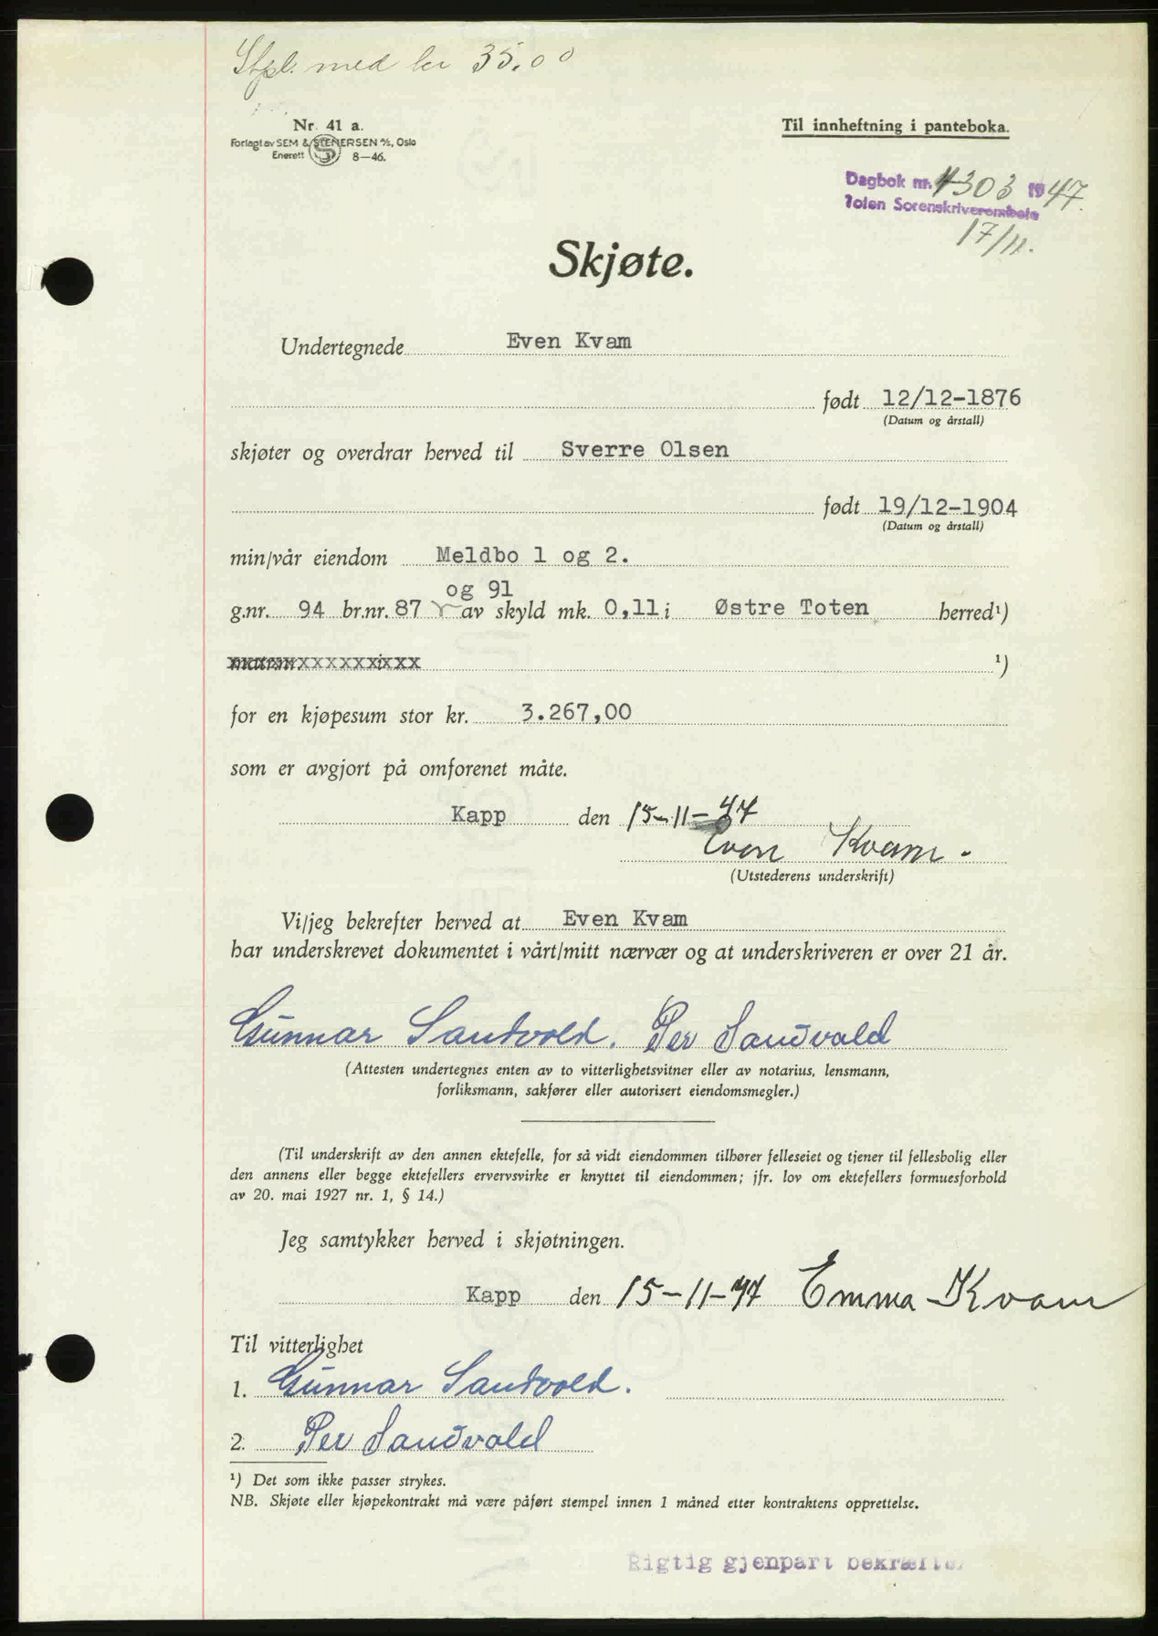 Stpl. med kr 35,00
Nr. 41 a.
Forlagt av SEM & STENERSEN A/S, Oslo
Enerett 8—46.
Til innheftning i panteboka.
Dagbok nr. 4303 1947.
Toten Sorenskriverembete
17/11.
Skjøte.
Undertegnede Even Kvam
født 12/12-1876
(Datum og årstall)
skjøter og overdrar herved til Sverre Olsen
født 19/12-1904
(Datum og årstall)
min/vår eiendom Meldbo 1 og 2.
og 91
g.nr. 94 br.nr. 87 av skyld mk. 0,11 i Østre Toten herred¹)
¹)
for en kjøpesum stor kr. 3.267,00
som er avgjort på omforenet måte.
Kapp den 15-11-47
Even Kvam.
(Utstederens underskrift)
Vi/jeg bekrefter herved at Even Kvam
har underskrevet dokumentet i vårt/mitt nærvær og at underskriveren er over 21 år.
Gunnar Sandvold. Per Sandvold
(Attesten undertegnes enten av to vitterlighetsvitner eller av notarius, lensmann,
forliksmann, sakfører eller autorisert eiendomsmegler.)
(Til underskrift av den annen ektefelle, for så vidt eiendommen tilhører felleseiet og tjener til fellesbolig eller
den annens eller begge ektefellers ervervsvirke er knyttet til eiendommen; jfr. lov om ektefellers formuesforhold
av 20. mai 1927 nr. 1, § 14.)
Jeg samtykker herved i skjøtningen.
Kapp den 15-11-47 Emma Kvam
Til vitterlighet
1. Gunnar Sandvold.
2. Per Sandvold
¹) Det som ikke passer strykes.
NB. Skjøte eller kjøpekontrakt må være påført stempel innen 1 måned etter kontraktens opprettelse.
Rigtig gjenpart bekræftes